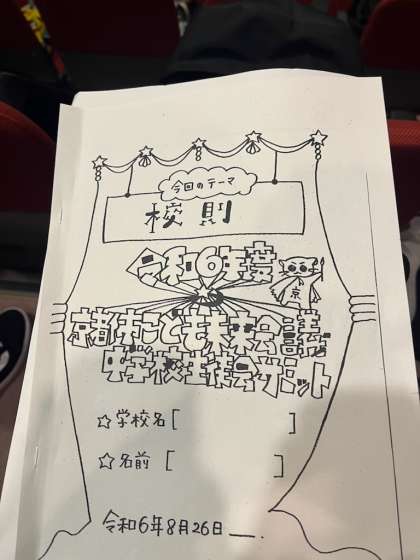 今回のテーマ
校則
令和6年度
京
京都市こども未来会議
中学校生徒会サミット
☆学校名[ ]
☆名前 [ ]
令和6年8月26日